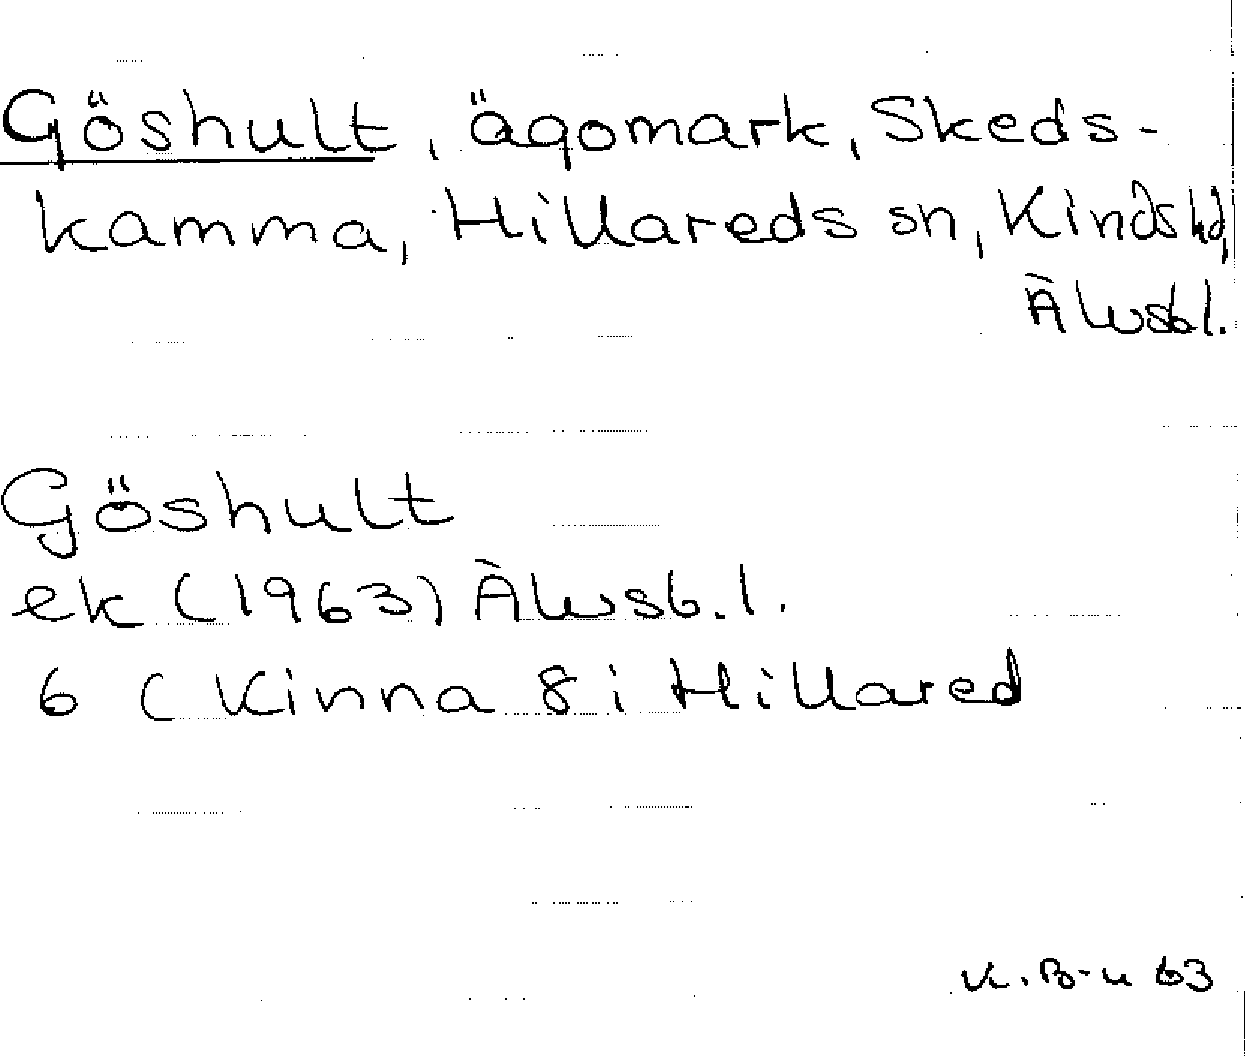 Göshult, ägomark, Skeds-
kamma, Hillareds sn, Kinds hd,
Älvsbl.
Göshult
ek (1963) Älvsb.l.
6 (Kinna 8 i Hillared
K.B-u 63